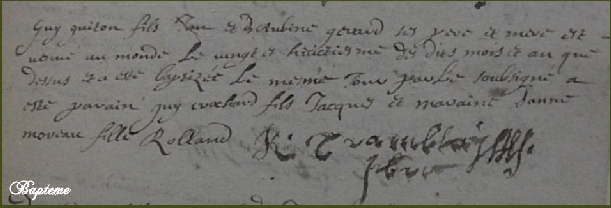 Guy quiton fils Jan et d'aubine gerard ses pere et mere est
venu au monde le vingt et huictiesme des dits mois et an que
dessus et a esté baptizee le mesme Jour par le soubsigné a
esté parain guy crochard fils Jacques et maraine Janne
moreau fille Rolland R. Tramblay
Bapteme